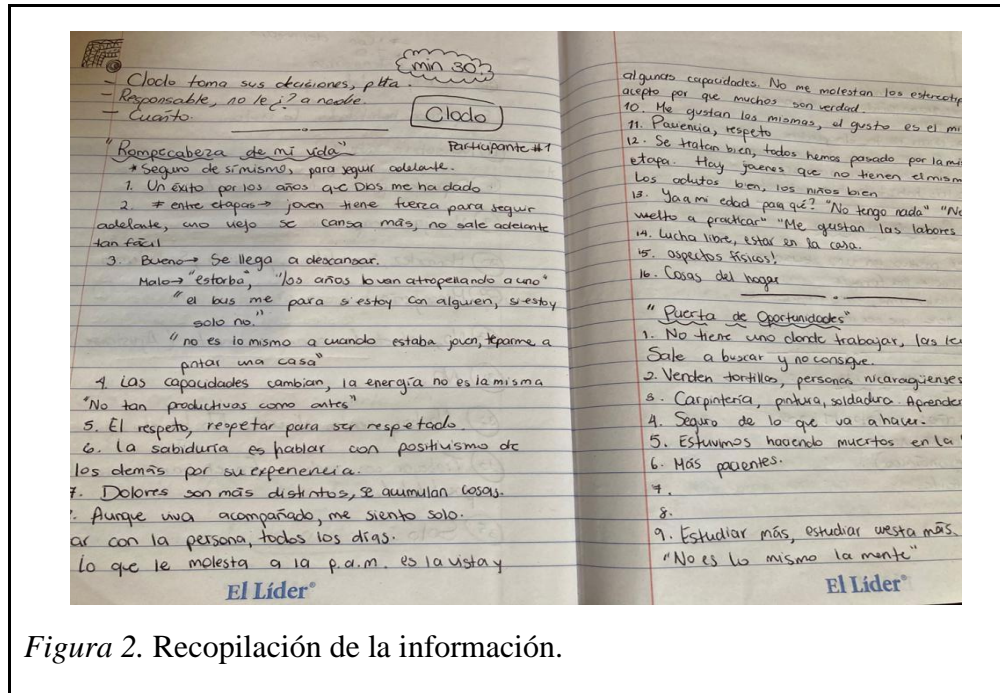 min 30
- Cloclo toma sus decisiones, plta.
- Responsable, no le ¿? a nadie.
- Cuarto.
Cloclo
"Rompecabeza de mi vida"
Participante #1
* Seguro de si mismo, para seguir adelante.
1. Un éxito por los años que Dios me ha dado
2. ≠ entre etapas → joven tiene fuerza para seguir
adelante, uno viejo se cansa más, no sale adelante
tan fácil
3. Bueno → Se llega a descansar.
Malo → "estorba", "los años lo van attropellando a uno"
"el bus me para si estoy con alguien, si estoy
solo no."
"no es lo mismo a cuando estaba joven, teparme a
pintar una casa"
4. Las capacidades cambian, la energía no es la misma
"No tan productivas como antes"
5. El respeto, respetar para ser respetado.
6. La sabiduría es hablar con positivismo de
los demás por su experiencia.
7. Dolores son más distintos, se acumulan cosas.
. Aunque viva acompañado, me siento solo.
ar con la persona, todos los días.
lo que le molesta a la p.a.m. es la vista y
El Líder®
algunas capacidades. No me molestan los estereotip
acepto por que muchos son verdad.
10. Me gustan las mismas, el gusto es el mi
11. Paciencia, respeto
12. Se tratan bien, todos hemos pasado por la mi
etapa. Hay jovenes que no tienen el mism
Los adultos bien, los niños bien
13. Ya a mi edad para qué? "No tengo nada" "No
vuelto a practicar" "Me gustan las labores
14. Lucha libre, estar en la casa.
15. aspectos físicos!
16. Cosas del hogar
"Puerta de Oportunidades"
1. No tiene uno donde trabajar, las le
Sale a buscar y no consigue.
2. Venden tortillas, personas nicaragüenses
3. Carpintería, pintura, soldadura. Aprender
4. Seguro de lo que va a hacer.
5. Estuvimos haciendo muertos en la
6. Más pacientes.
7.
8.
9. Estudiar más, estudiar cuesta más.
"No es lo mismo la mente"
El Líder®
Figura 2. Recopilación de la información.